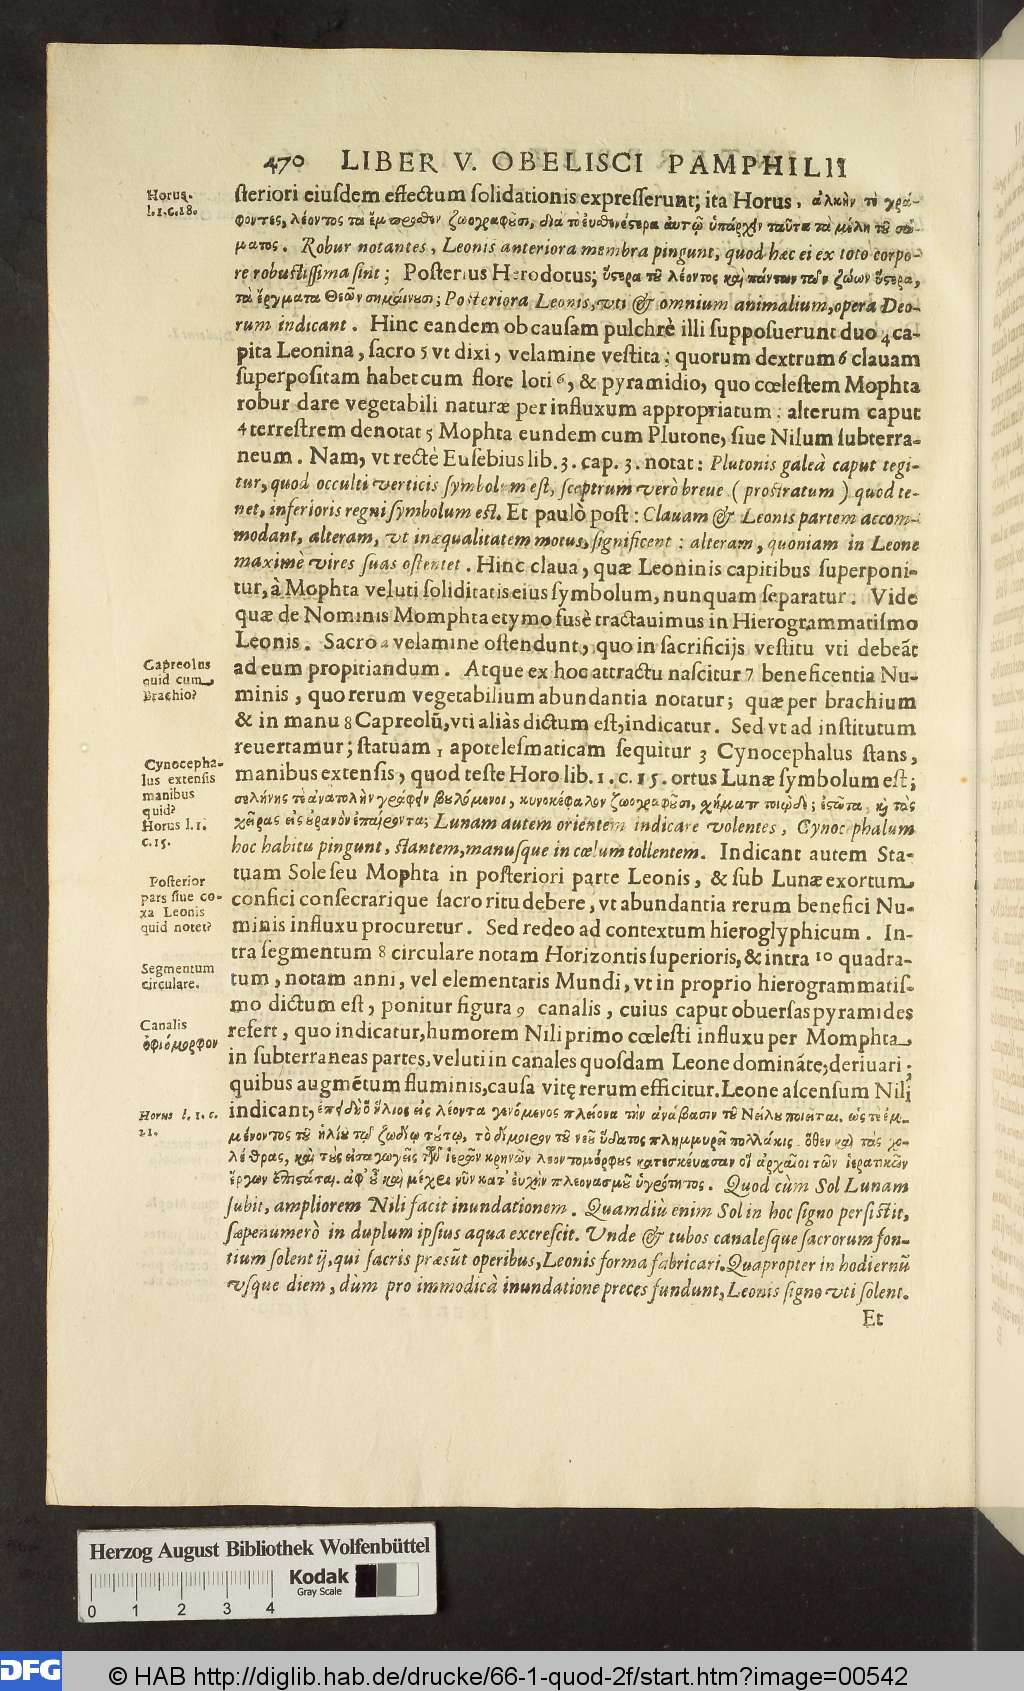 470 LIBER V. OBELISCI PAMPHILII
Horus.
l.1.c.18.
steriori eiusdem effectum solidationis expresserunt; ita Horus, ἀλκὴν τὸ γρά-
φοντες, λέοντος τὰ ἔμπροσθεν ζωογραφοῦσι, διὰ τὸ εὐσθενέστερα αὐτῷ ὑπάρχειν ταῦτα τὰ μέλη τοῦ σώ-
ματος. Robur notantes, Leonis anteriora membra pingunt, quod hæc ei ex toto corpo-
re robustissima sint; Posterius Herodotus; ὕστερα τοῦ λέοντος καὶ πάντων τῶν ζώων ὕστερα,
τὰ ἔργματα Θεῶν σημαίνουσι; Posteriora Leonis, vti & omnium animalium, opera Deo-
rum indicant. Hinc eandem ob causam pulchrè illi supposuerunt duo 4 ca-
pita Leonina, sacro 5 vt dixi, velamine vestita; quorum dextrum 6 clauam
superpositam habet cum flore loti 6, & pyramidio, quo cœlestem Mophta
robur dare vegetabili naturæ per influxum appropriatum: alterum caput
4 terrestrem denotat 5 Mophta eundem cum Plutone, siue Nilum subterra-
neum. Nam, vt rectè Eusebius lib. 3. cap. 3. notat: Plutonis galeâ caput tegi-
tur, quod occulti verticis symbolum est, sceptrum verò breue (prostratum) quod te-
net, inferioris regni symbolum est. Et paulò post: Clauam & Leonis partem accom-
modant, alteram, vt inæqualitatem motus, significent: alteram, quoniam in Leone
maximè vires suas ostentet. Hinc claua, quæ Leoninis capitibus superponi-
tur, à Mophta veluti soliditatis eius symbolum, nunquam separatur. Vide
quæ de Nominis Momphta etymo fusè tractauimus in Hierogrammatismo
Leonis. Sacro 2 velamine ostendunt, quo in sacrificijs vestitu vti debeãt
Capreolus
quid cum
Brachio?
ad eum propitiandum. Atque ex hoc attractu nascitur 7 beneficentia Nu-
minis, quo rerum vegetabilium abundantia notatur; quæ per brachium
& in manu 8 Capreolũ, vti alias dictum est, indicatur. Sed vt ad institutum
reuertamur; statuam 1 apotelesmaticam sequitur 3 Cynocephalus stans,
Cynocepha-
lus extensis
manibus
quid?
Horus l.1.
c.15.
manibus extensis, quod teste Horo lib. 1. c. 15. ortus Lunæ symbolum est;
σελήνης τὲ ἀνατολὴν γράφειν βουλόμενοι, κυνοκέφαλον ζωογραφοῦσι, χήματι τοιῷδε; ἑστῶτα, καὶ τὰς
χεῖρας εἰς οὐρανὸν ἐπαίροντα; Lunam autem orientem indicare volentes, Cynocephalum
hoc habitu pingunt, stantem, manusque in cœlum tollentem. Indicant autem Sta-
tuam Sole seu Mophta in posteriori parte Leonis, & sub Lunæ exortum
Posterior
pars siue co-
xa Leonis
quid notet?
confici consecrarique sacro ritu debere, vt abundantia rerum benefici Nu-
minis influxu procuretur. Sed redeo ad contextum hieroglyphicum. In-
tra segmentum 8 circulare notam Horizontis superioris, & intra 10 quadra-
Segmentum
circulare.
tum, notam anni, vel elementaris Mundi, vt in proprio hierogrammatis-
mo dictum est, ponitur figura 9 canalis, cuius caput obuersas pyramides
Canalis
ὀφιόμορφον
refert, quo indicatur, humorem Nili primo cœlesti influxu per Momphta
in subterraneas partes, veluti in canales quosdam Leone dominãte, deriuari;
quibus augmẽtum fluminis, causa vitę rerum efficitur. Leone ascensum Nili
Horus l. 1. c.
21.
indicant, ἐπειδὴ ὁ ἥλιος εἰς λέοντα γενόμενος πλείονα τὴν ἀνάβασιν τοῦ Νείλου ποιεῖται, ὥς τε ἐμ-
μένοντος τοῦ ἡλίου τῷ ζωδίῳ τούτῳ, τὸ δίμοιρον τοῦ νέου ὕδατος πλημμυρεῖ πολλάκις. ὅθεν καὶ τὰς χο-
λέδρας, καὶ τοὺς εἰσαγωγεῖς τῶν ἱερῶν κρηνῶν λεοντομόρφους κατεσκεύασαν οἱ ἀρχαῖοι τῶν ἱερατικῶν
ἔργων ἐπιστάται. ἀφ' οὗ καὶ μέχρι νῦν κατ' εὐχὴν πλεονασμοῦ ὑγρότητος. Quod cùm Sol Lunam
subit, ampliorem Nili facit inundationem. Quamdiù enim Sol in hoc signo persistit,
sæpenumerò in duplum ipsius aqua excrescit. Vnde & tubos canalesque sacrorum fon-
tium solent ij, qui sacris præsũt operibus, Leonis forma fabricari. Quapropter in hodiernũ
vsque diem, dùm pro immodicâ inundatione preces fundunt, Leonis signo vti solent.
Et
Herzog August Bibliothek Wolfenbüttel
Kodak
Gray Scale
0 1 2 3 4
DFG © HAB http://diglib.hab.de/drucke/66-1-quod-2f/start.htm?image=00542